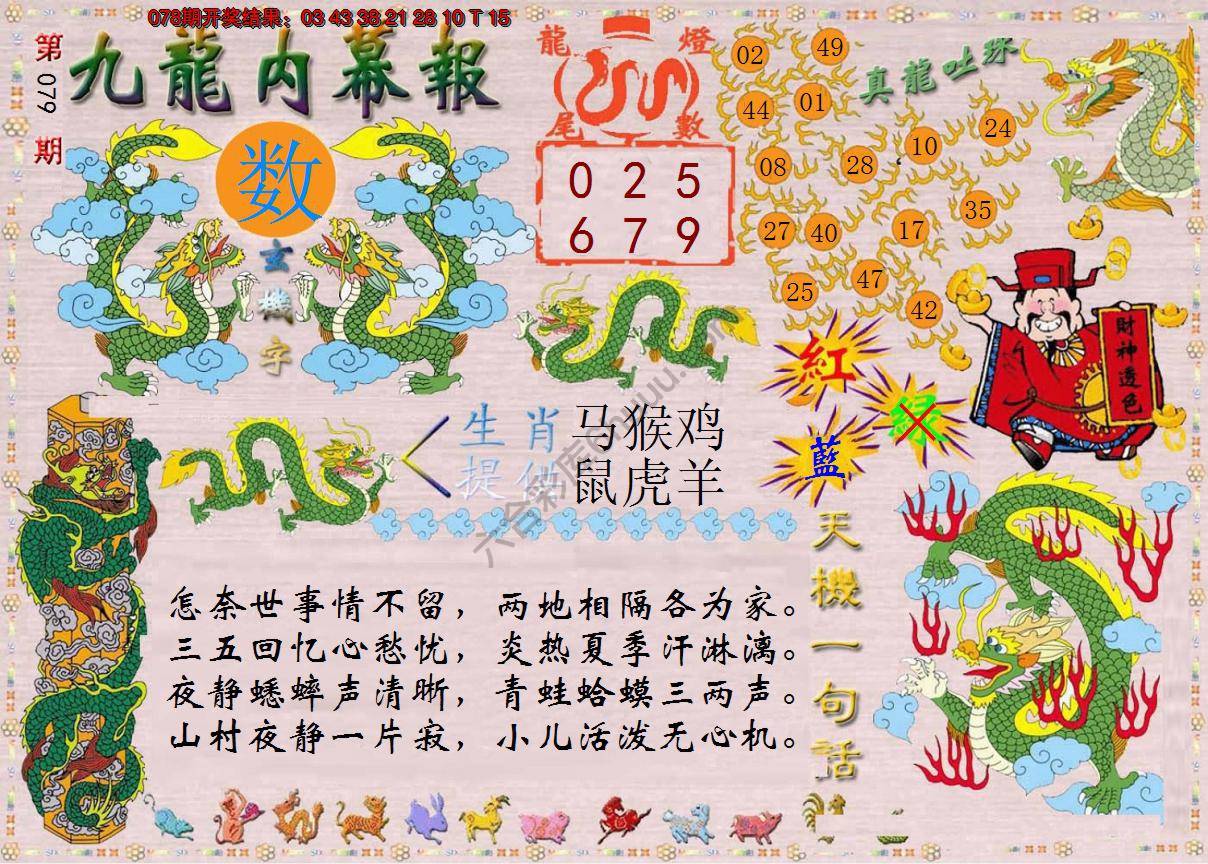 078期开奖结果：03 43 38 21 28 10 T 15
第079期
九龍内幕報
数
玄機字
龍燈
尾數
0 2 5
6 7 9
真龍吐珠
02 49
44 01
08 28 10 24
27 40 17 35
25 47 42
財神透色
紅
绿
藍
生肖
提供
马猴鸡
鼠虎羊
天機一句话
怎奈世事情不留，两地相隔各为家。
三五回忆心愁忧，炎热夏季汗淋漓。
夜静蟋蟀声清晰，青蛙蛤蟆三两声。
山村夜静一片寂，小儿活泼无心机。